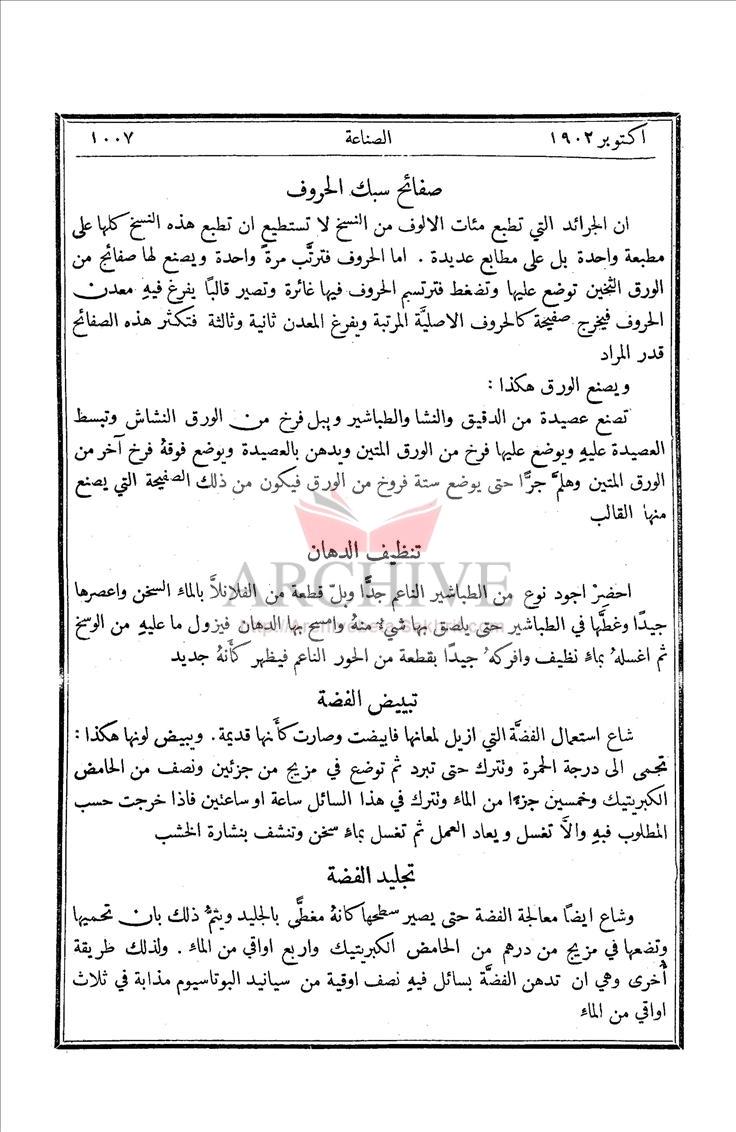 اكتوبر ١٩٠٢ الصناعة ١٠٠٧
صفائح سبك الحروف
ان الجرائد التي تطبع مئات الالوف من النسخ لا تستطيع ان تطبع هذه النسخ كلها على
مطبعة واحدة بل على مطابع عديدة . اما الحروف فترتَّب مرةً واحدة ويصنع لها صفائح من
الورق الثخين توضع عليها وتضغط فترتسم الحروف فيها غائرة وتصير قالبًا يفرغ فيهِ معدن
الحروف فيخرج صفيحة كالحروف الاصليَّة المرتبة ويفرغ المعدن ثانية وثالثة فتكثر هذه الصفائح
قدر المراد
ويصنع الورق هكذا :
تصنع عصيدة من الدقيق والنشا والطباشير ويبل فرخ من الورق النشاش وتبسط
العصيدة عليهِ ويوضع عليها فرخ من الورق المتين ويدهن بالعصيدة ويوضع فوقهُ فرخ آخر من
الورق المتين وهلمَّ جرًّا حتى يوضع ستة فروخ من الورق فيكون من ذلك الصفيحة التي يصنع
منها القالب
تنظيف الدهان
ARCHIVE
احضرْ اجود نوع من الطباشير الناعم جدًّا وبلّ قطعة من الفلانلاَّ بالماء السخن واعصرها
جيدًا وغطَّها في الطباشير حتى يلصق بها شيءٌ منهُ وامسح بها الدهان فيزول ما عليهِ من الوسخ
ثم اغسلهُ بماءٍ نظيف وافركهُ جيدًا بقطعة من الحور الناعم فيظهر كأَنهُ جديد
تبييض الفضة
شاع استعمال الفضَّة التي ازيل لمعانها فابيضت وصارت كأَنها قديمة . ويبيض لونها هكذا :
تحمى الى درجة الحمرة وتترك حتى تبرد ثم توضع في مزيج من جزئين ونصف من الحامض
الكبريتيك وخمسين جزءًا من الماء وتترك في هذا السائل ساعة او ساعتين فاذا خرجت حسب
المطلوب فبهِ والاَّ تغسل ويعاد العمل ثم تغسل بماءٍ سخن وتنشف بنشارة الخشب
تجليد الفضة
وشاع ايضًا معالجة الفضة حتى يصير سطحها كانهُ مغطًّى بالجليد ويتمُّ ذلك بان تحميها
وتضعها في مزيج من درهم من الحامض الكبريتيك واربع اواقي من الماء . ولذلك طريقة
أُخرى وهي ان تدهن الفضَّة بسائل فيهِ نصف اوقية من سيانيد البوتاسيوم مذابة في ثلاث
اواقي من الماء